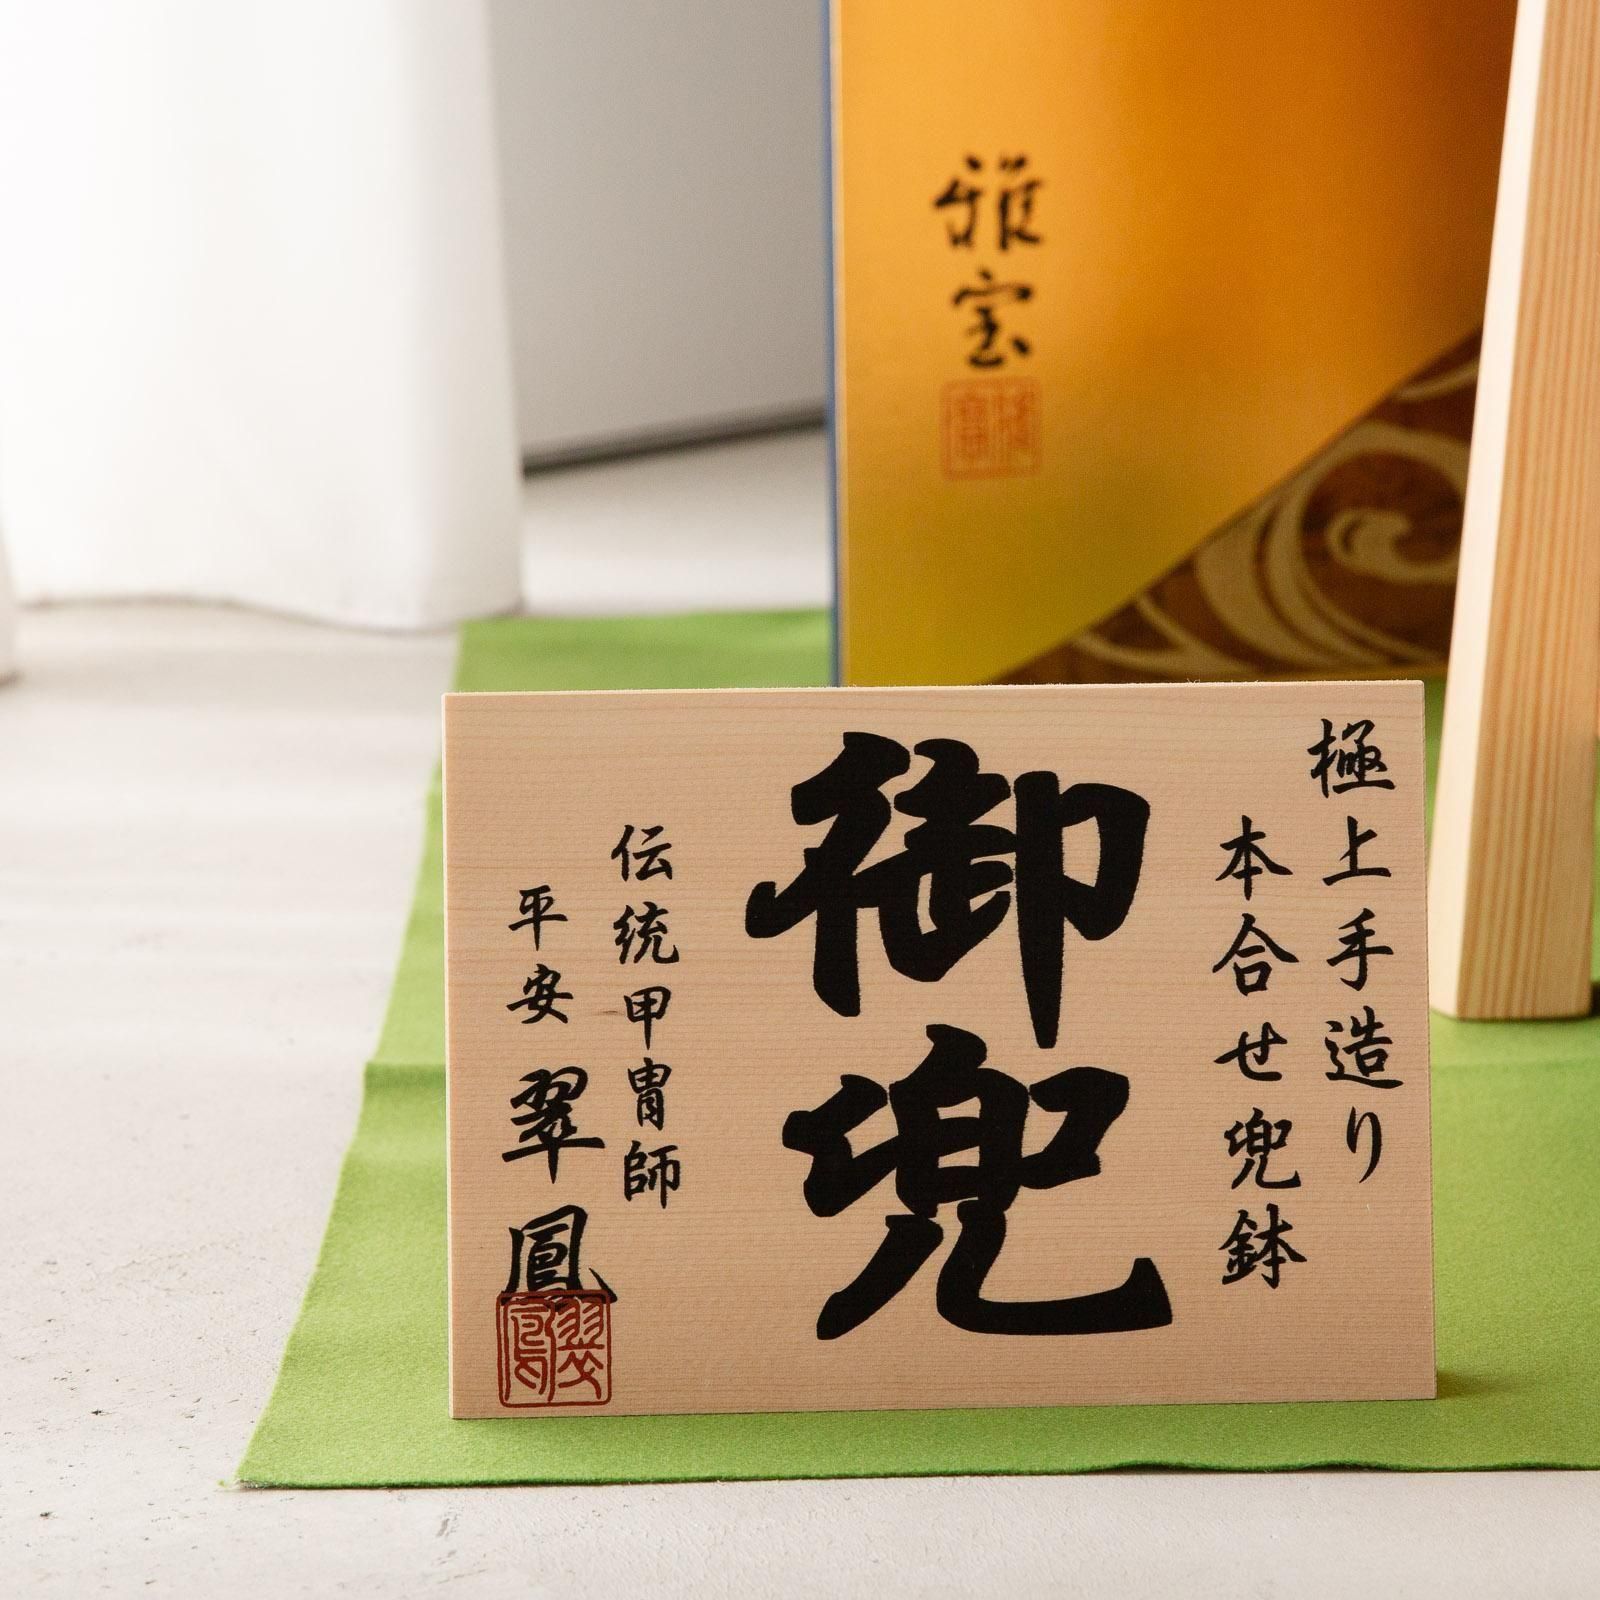 雅宝
極上手造り
本合せ兜鉢
御兜
伝統甲冑師
平安 翠鳳